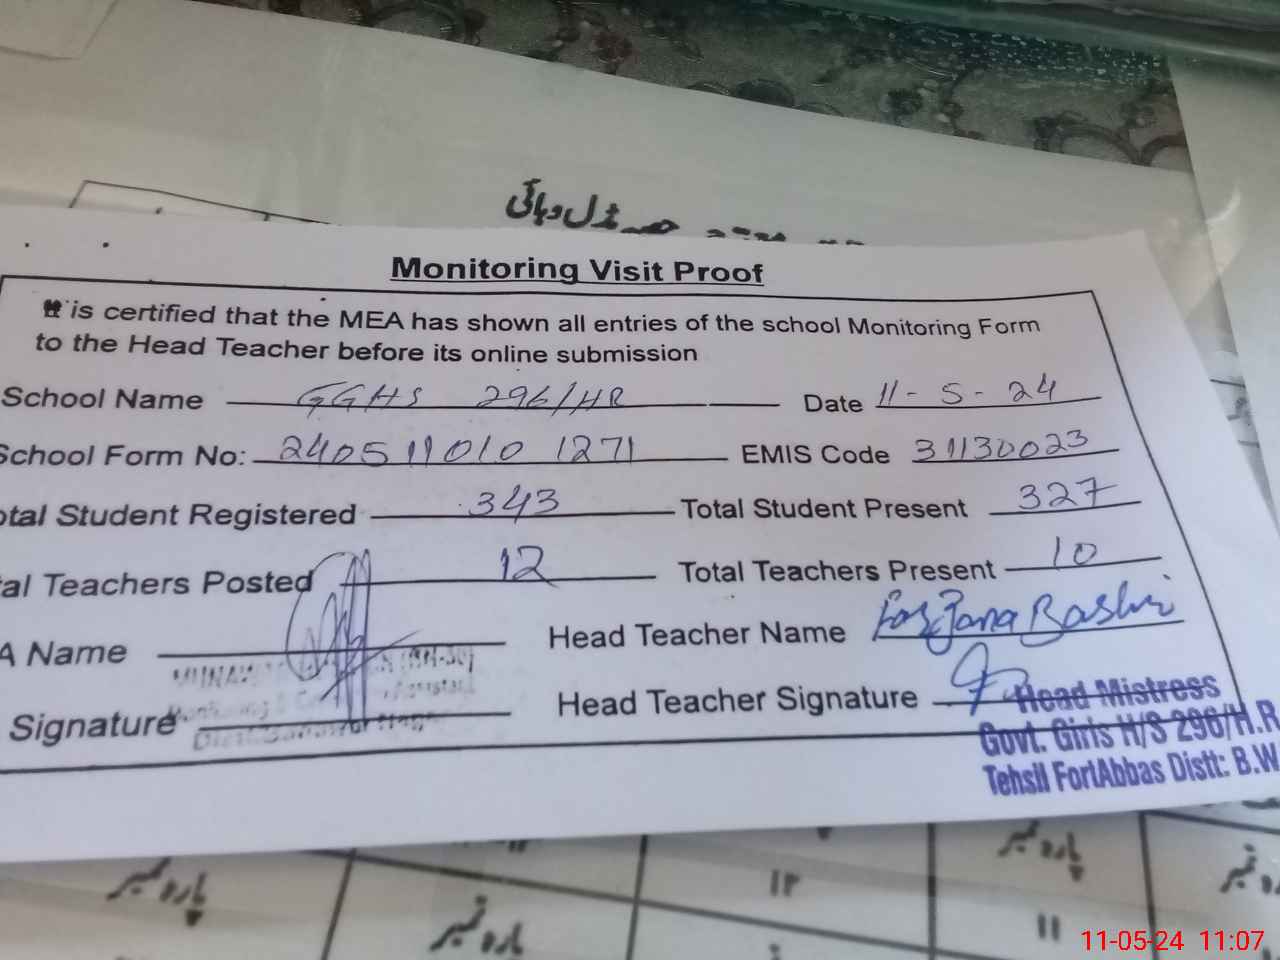 حصہ مڈل وہائی
Monitoring Visit Proof
It is certified that the MEA has shown all entries of the school Monitoring Form
to the Head Teacher before its online submission
School Name GGHS 296/HR Date 11-5-24
School Form No: 240511010 1271 EMIS Code 31130023
otal Student Registered 343 Total Student Present 327
al Teachers Posted 12 Total Teachers Present 10
A Name Head Teacher Name Farzana Bashir
Signature Head Teacher Signature
Head Mistress
Govt. Girls H/S 296/H.R
Tehsil FortAbbas Distt: B.W
پارہ نمبر ۱۲ پارہ نمبر
پارہ نمبر ۱۱
11-05-24 11:07